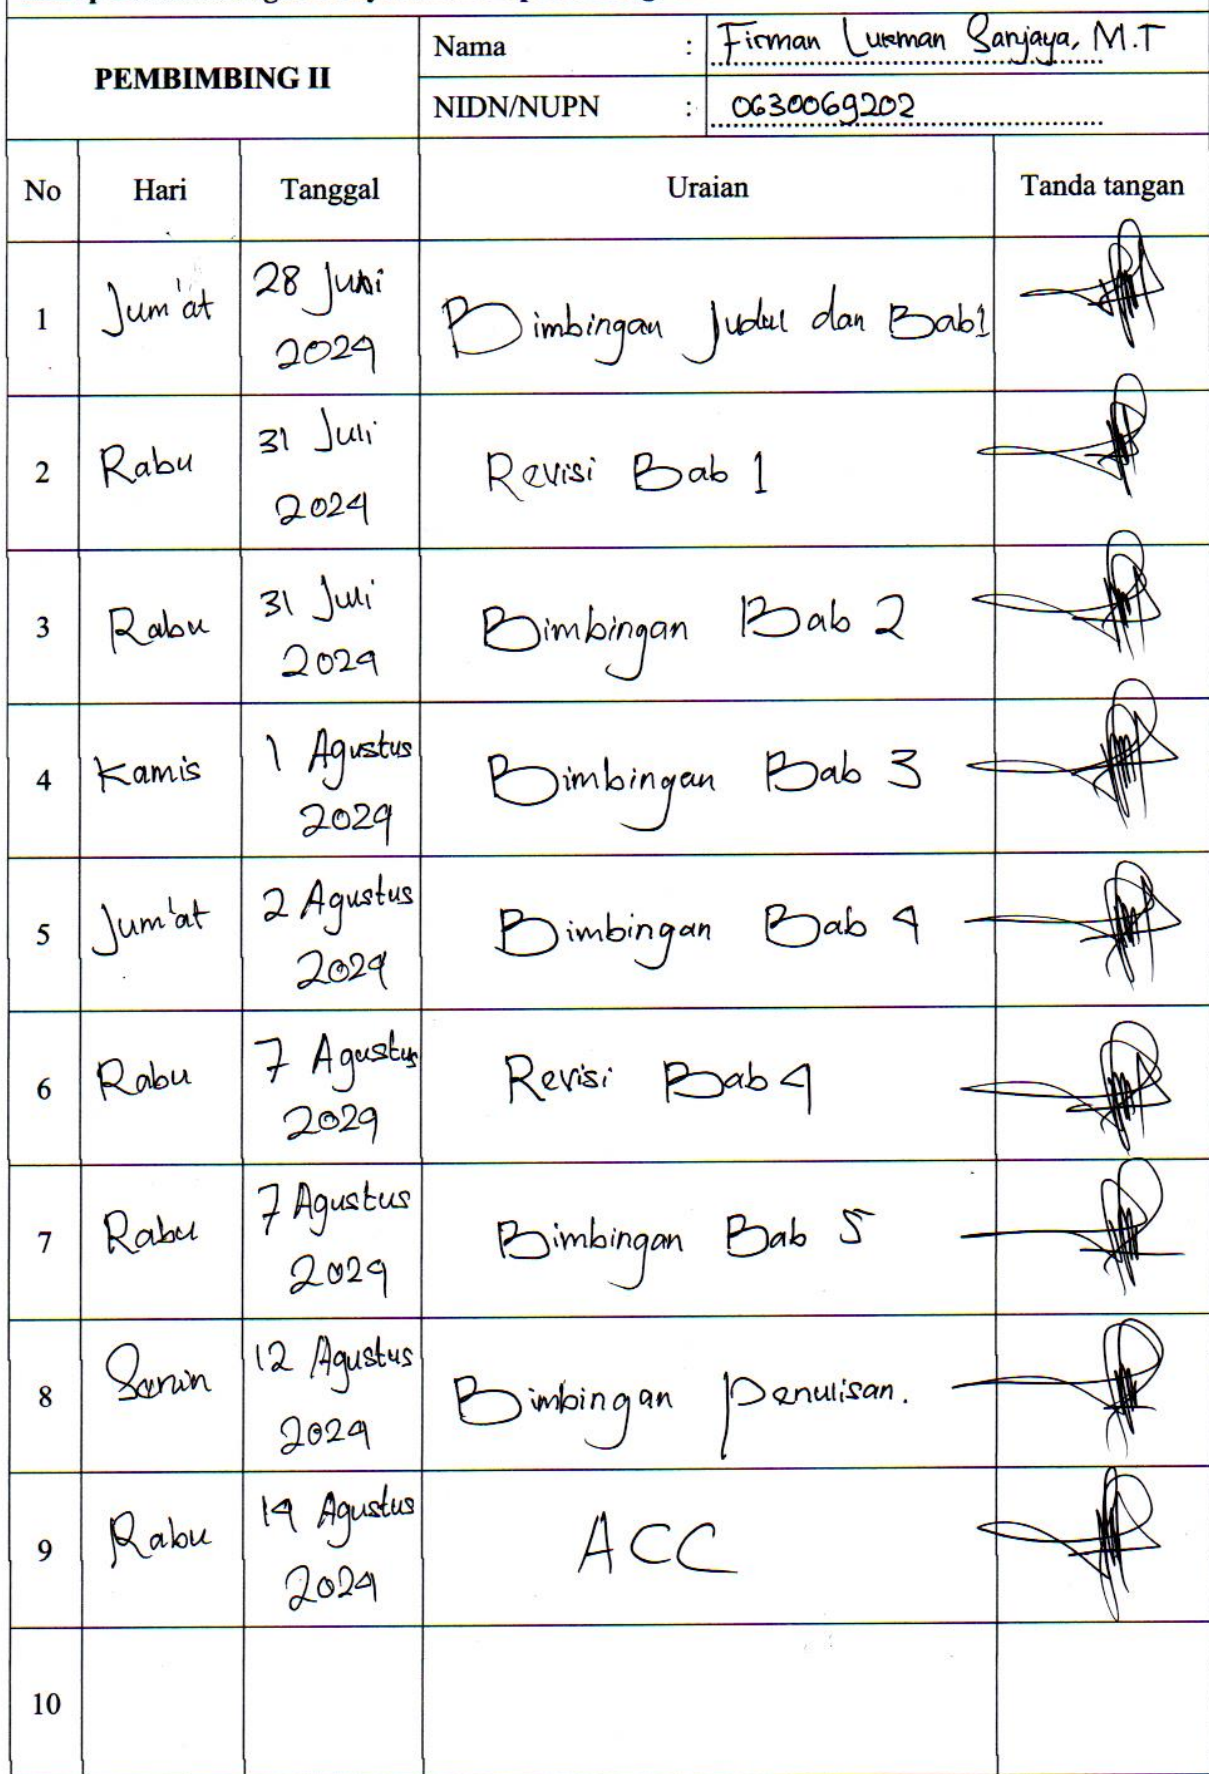 PEMBIMBING II
Nama : Firman Lukman Sanjaya, M.T
NIDN/NUPN : 0630069202
No Hari Tanggal Uraian Tanda tangan
1 Jum'at 28 Juni 2024 Bimbingan Judul dan Bab 1
2 Rabu 31 Juli 2024 Revisi Bab 1
3 Rabu 31 Juli 2024 Bimbingan Bab 2
4 Kamis 1 Agustus 2024 Bimbingan Bab 3
5 Jum'at 2 Agustus 2024 Bimbingan Bab 4
6 Rabu 7 Agustus 2024 Revisi Bab 4
7 Rabu 7 Agustus 2024 Bimbingan Bab 5
8 Senin 12 Agustus 2024 Bimbingan Penulisan.
9 Rabu 14 Agustus 2024 ACC
10